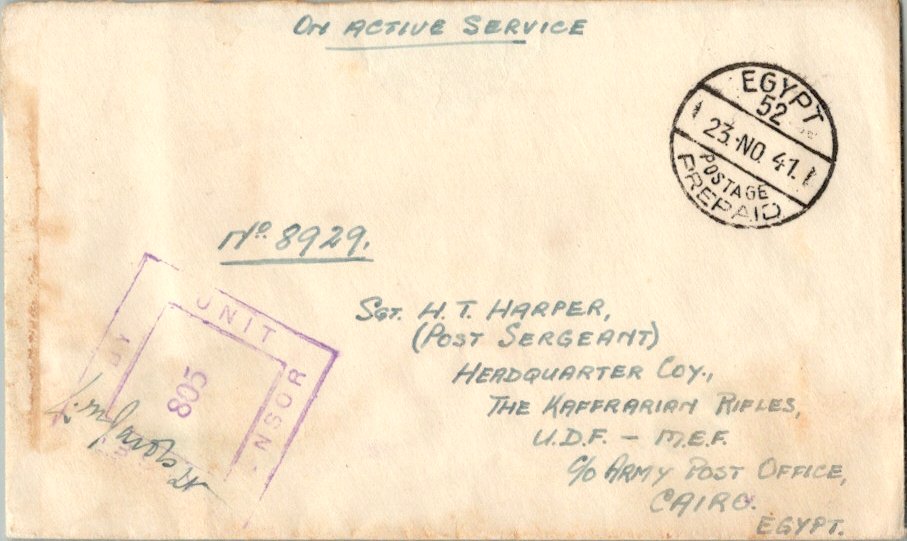 On ACTIVE SERVICE
EGYPT
52
23.NO.41.
POSTAGE
PREPAID
No. 8929.
SGT. H. T. HARPER,
(POST SERGEANT)
HEADQUARTER COY.,
THE KAFFRARIAN RIFLES,
U.D.F. – M.E.F.
C/o ARMY POST OFFICE,
CAIRO.
EGYPT.
UNIT
805